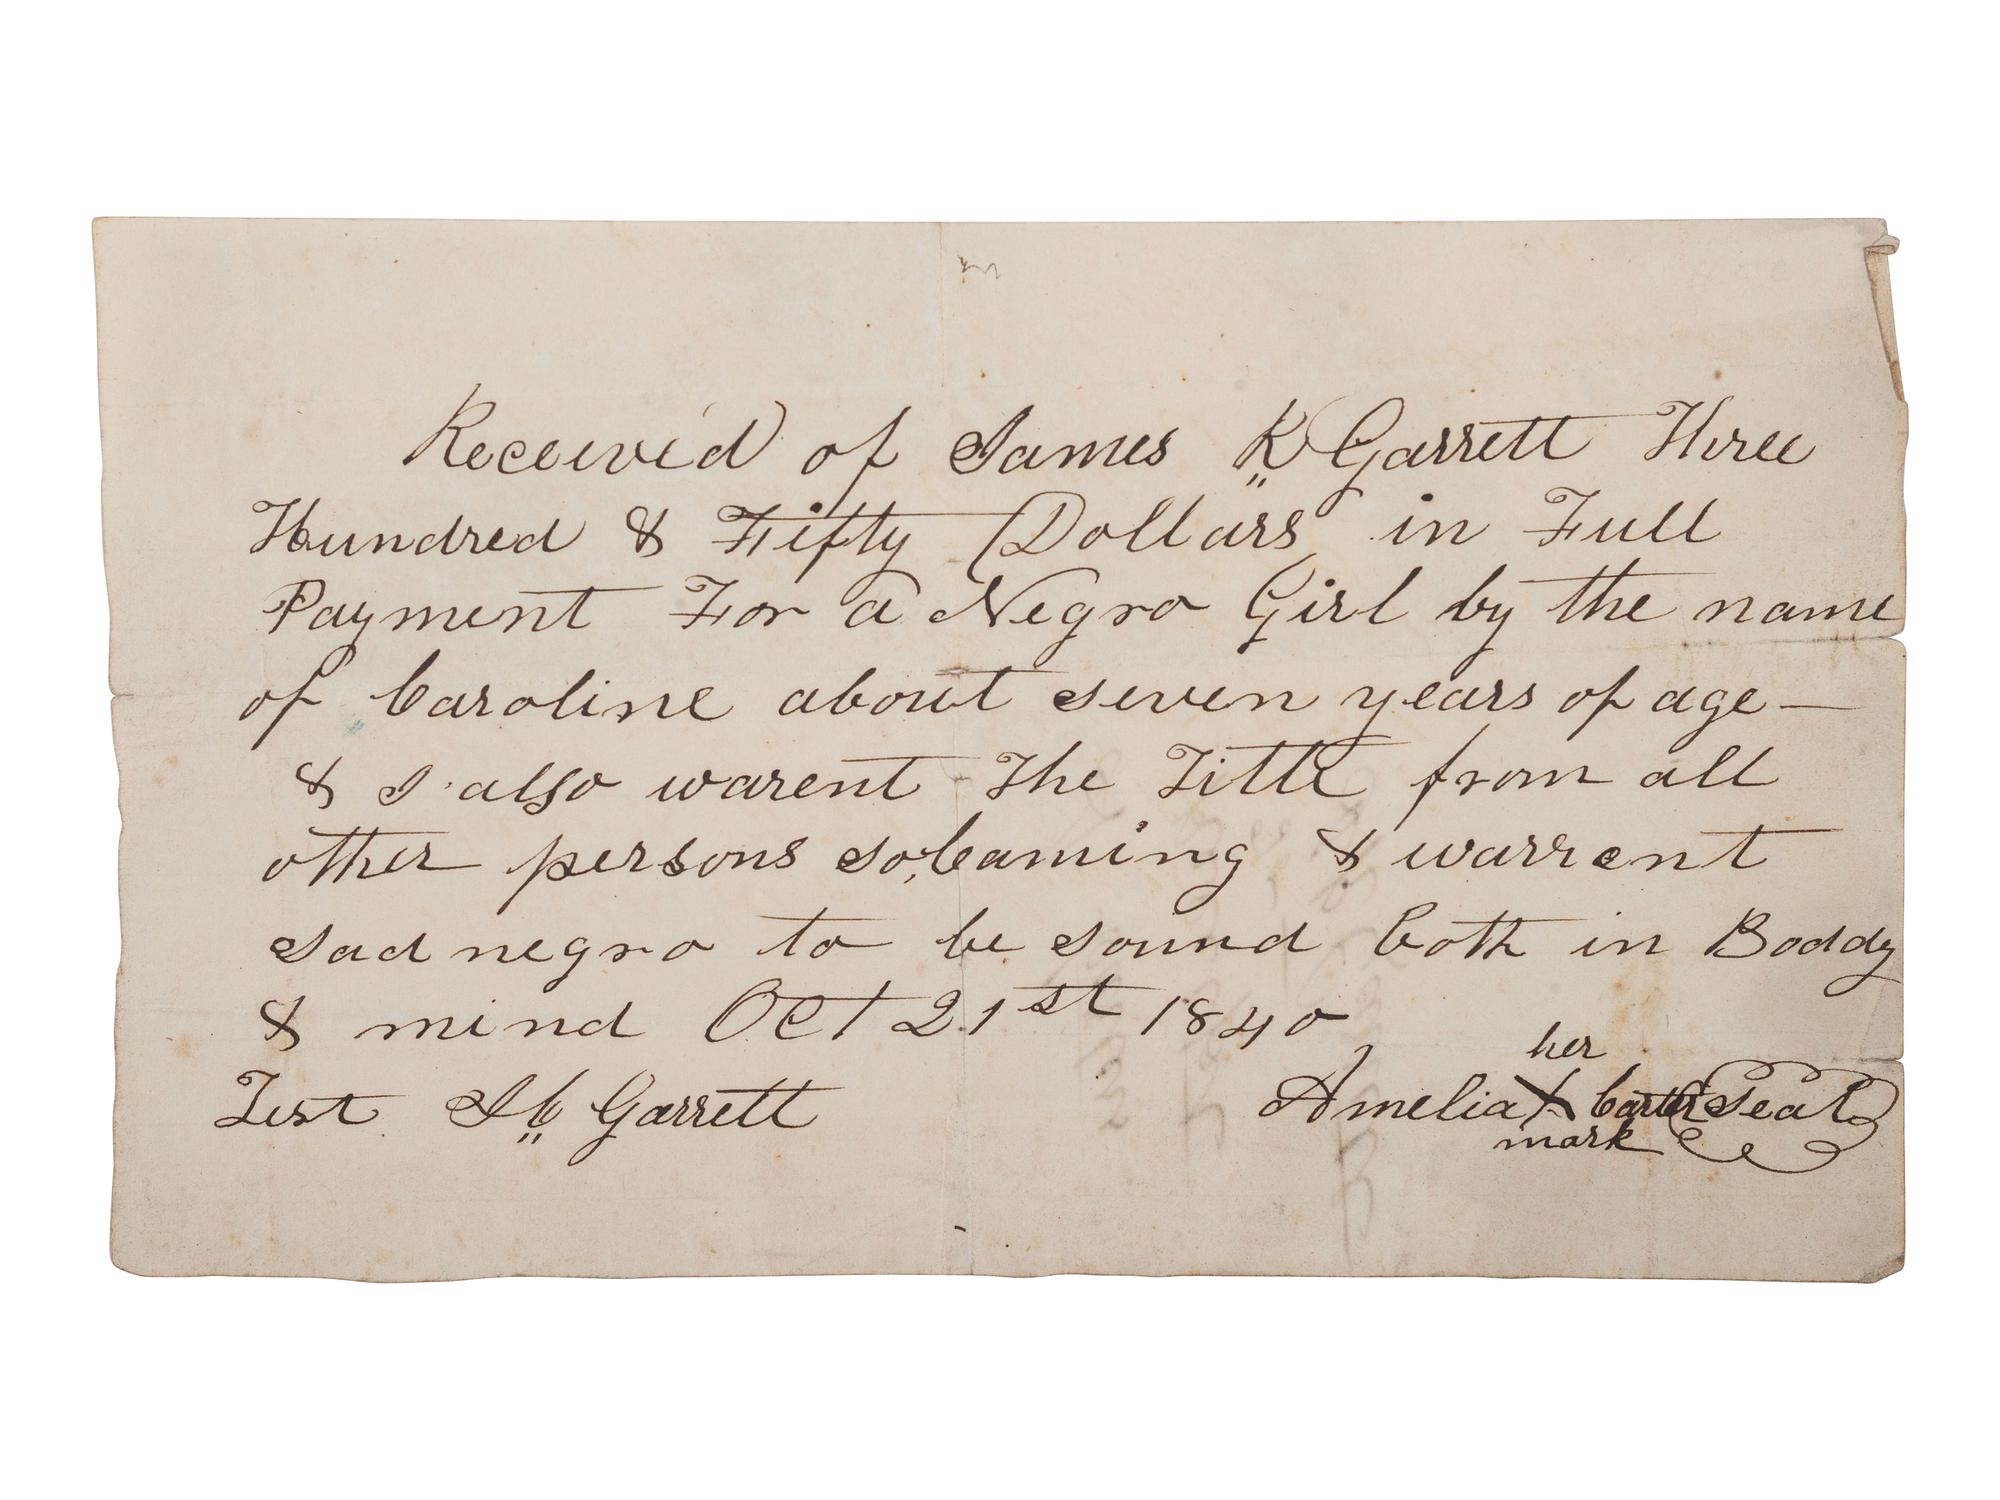 Receiv'd of James K Garrett Three
Hundred & Fifty Dollars in Full
Payment For a Negro Girl by the name
of Caroline about seven years of age —
& I also warent The Title from all
other persons so, Caming & warrent
sad negro to be sound both in Boddy
& mind Oct 21st 1840
her
Test I C Garrett Amelia X Carter Seal
mark